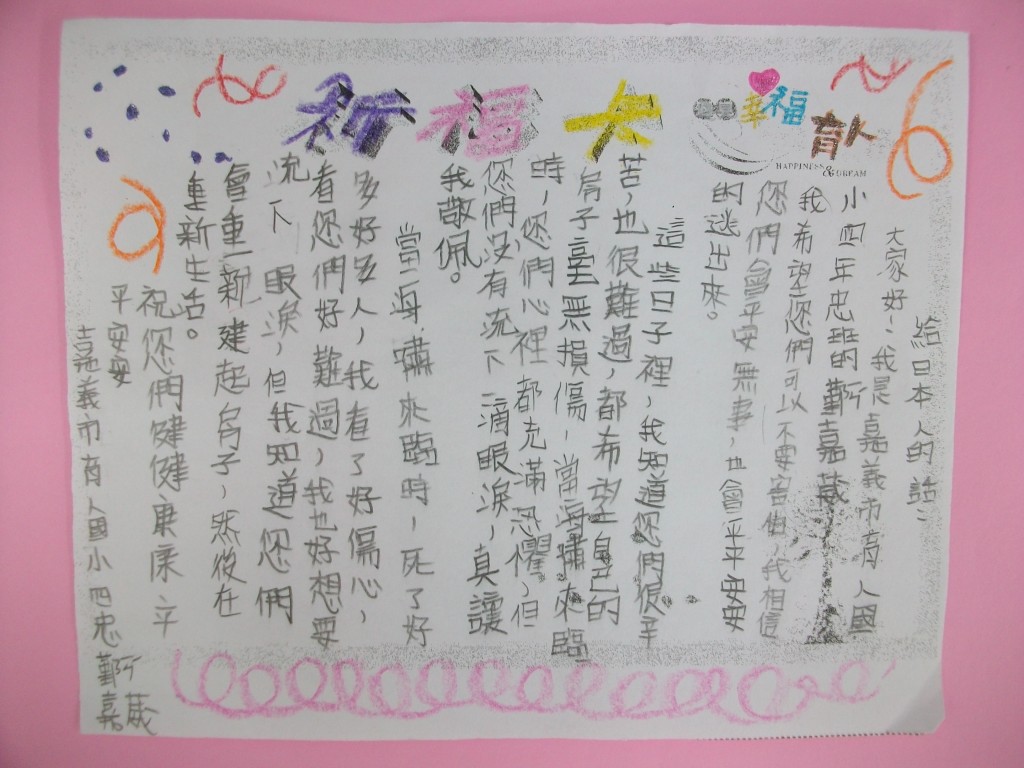 祈福卡
幸福
育人
HAPPINESS & DREAM
給日本人的話：
大家好！我是嘉義市育人國
小四年忠班的鄞嘉葳
我希望您們可以不要害怕，我相信
您們會平安無事，也會平平安安
的逃出來。
這些日子裡，我知道您們很辛
苦，也很難過，都希望自己的
房子毫無損傷，當海嘯來臨
時，您們心裡都充滿恐懼，但
您們沒有流下一滴眼淚，真讓
我敬佩。
當海嘯來臨時，死了好
多好多人，我看了好傷心，
看您們好難過，我也好想要
流下眼淚，但我知道您們
會重新建起房子，然後在
重新生活。
祝您們健健康康平
平安安
嘉義市育人國小四忠鄞嘉葳